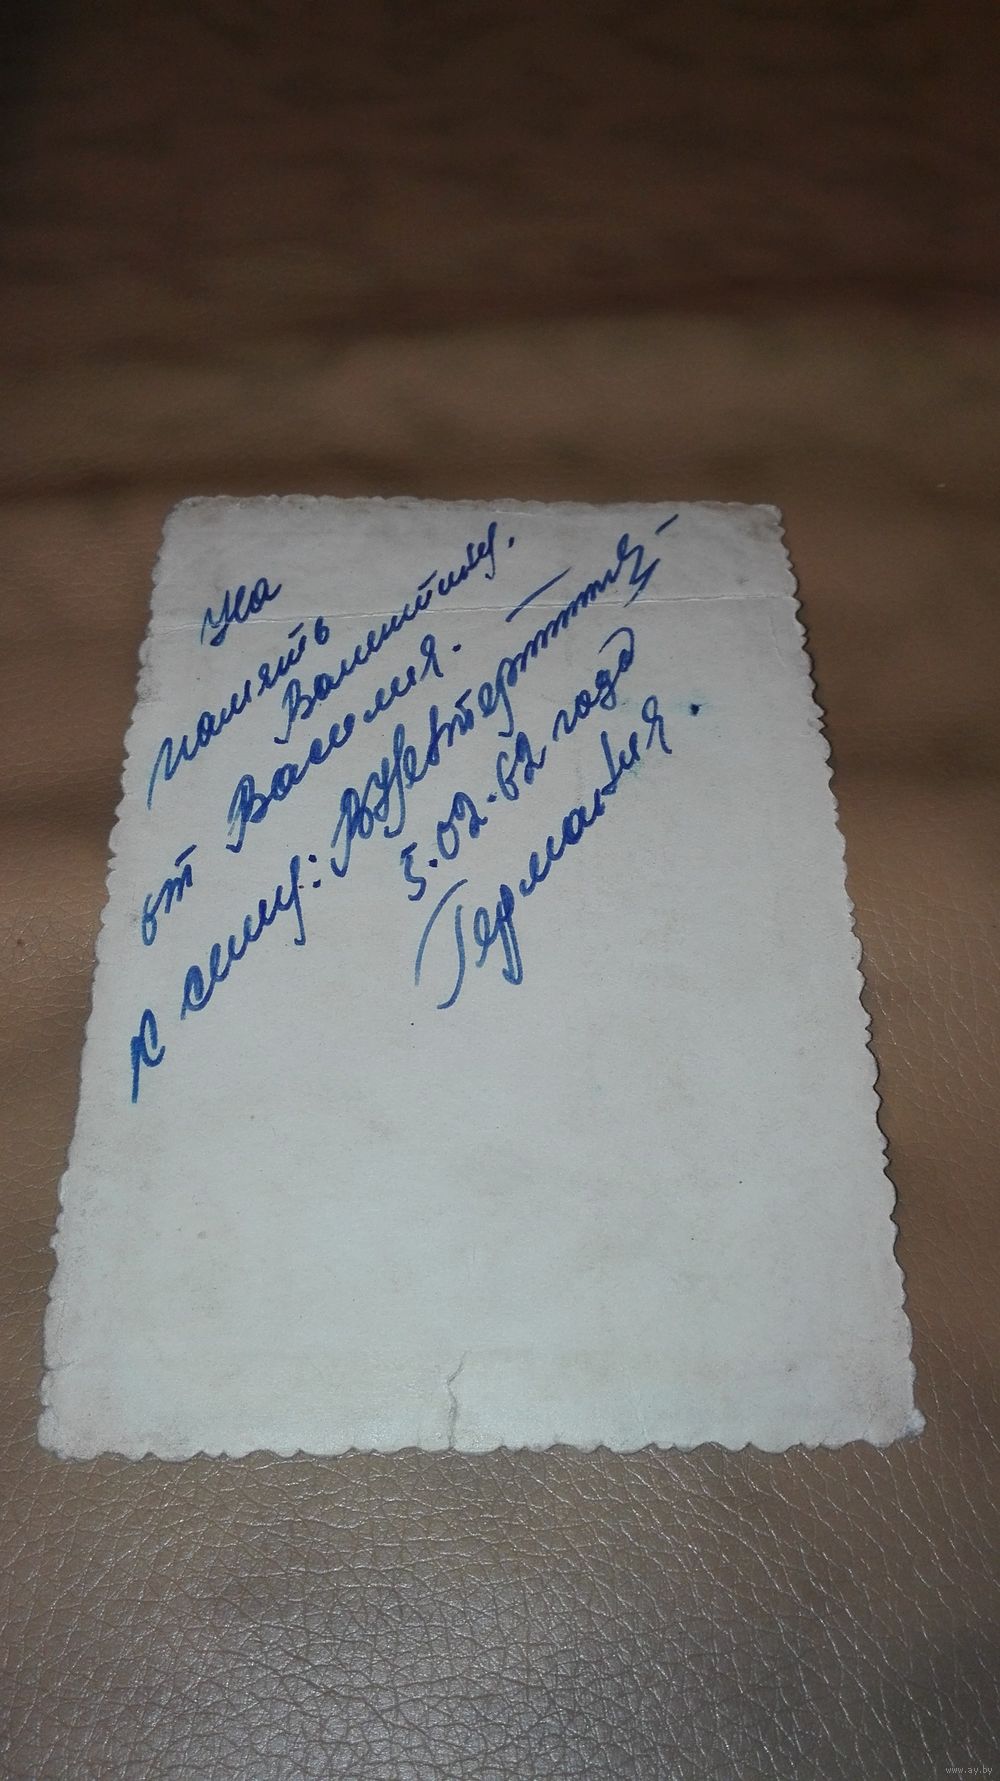 На
память
Валентину.
от Василия.
к сему:
5.02.62 года
Германия.
www.ay.by